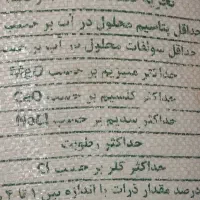 تجزیه
حداقل پتاسیم محلول در آب بر حسب
حداقل سولفات محلول در آب بر حسب
حداکثر منیزیم بر حسب MgO
حداکثر کلسیم بر حسب CaO
حداکثر سدیم بر حسب NaCl
حداکثر رطوبت
حداکثر کلر بر حسب Cl
درصد مقدار ذرات با اندازه بین ۱ تا ۴